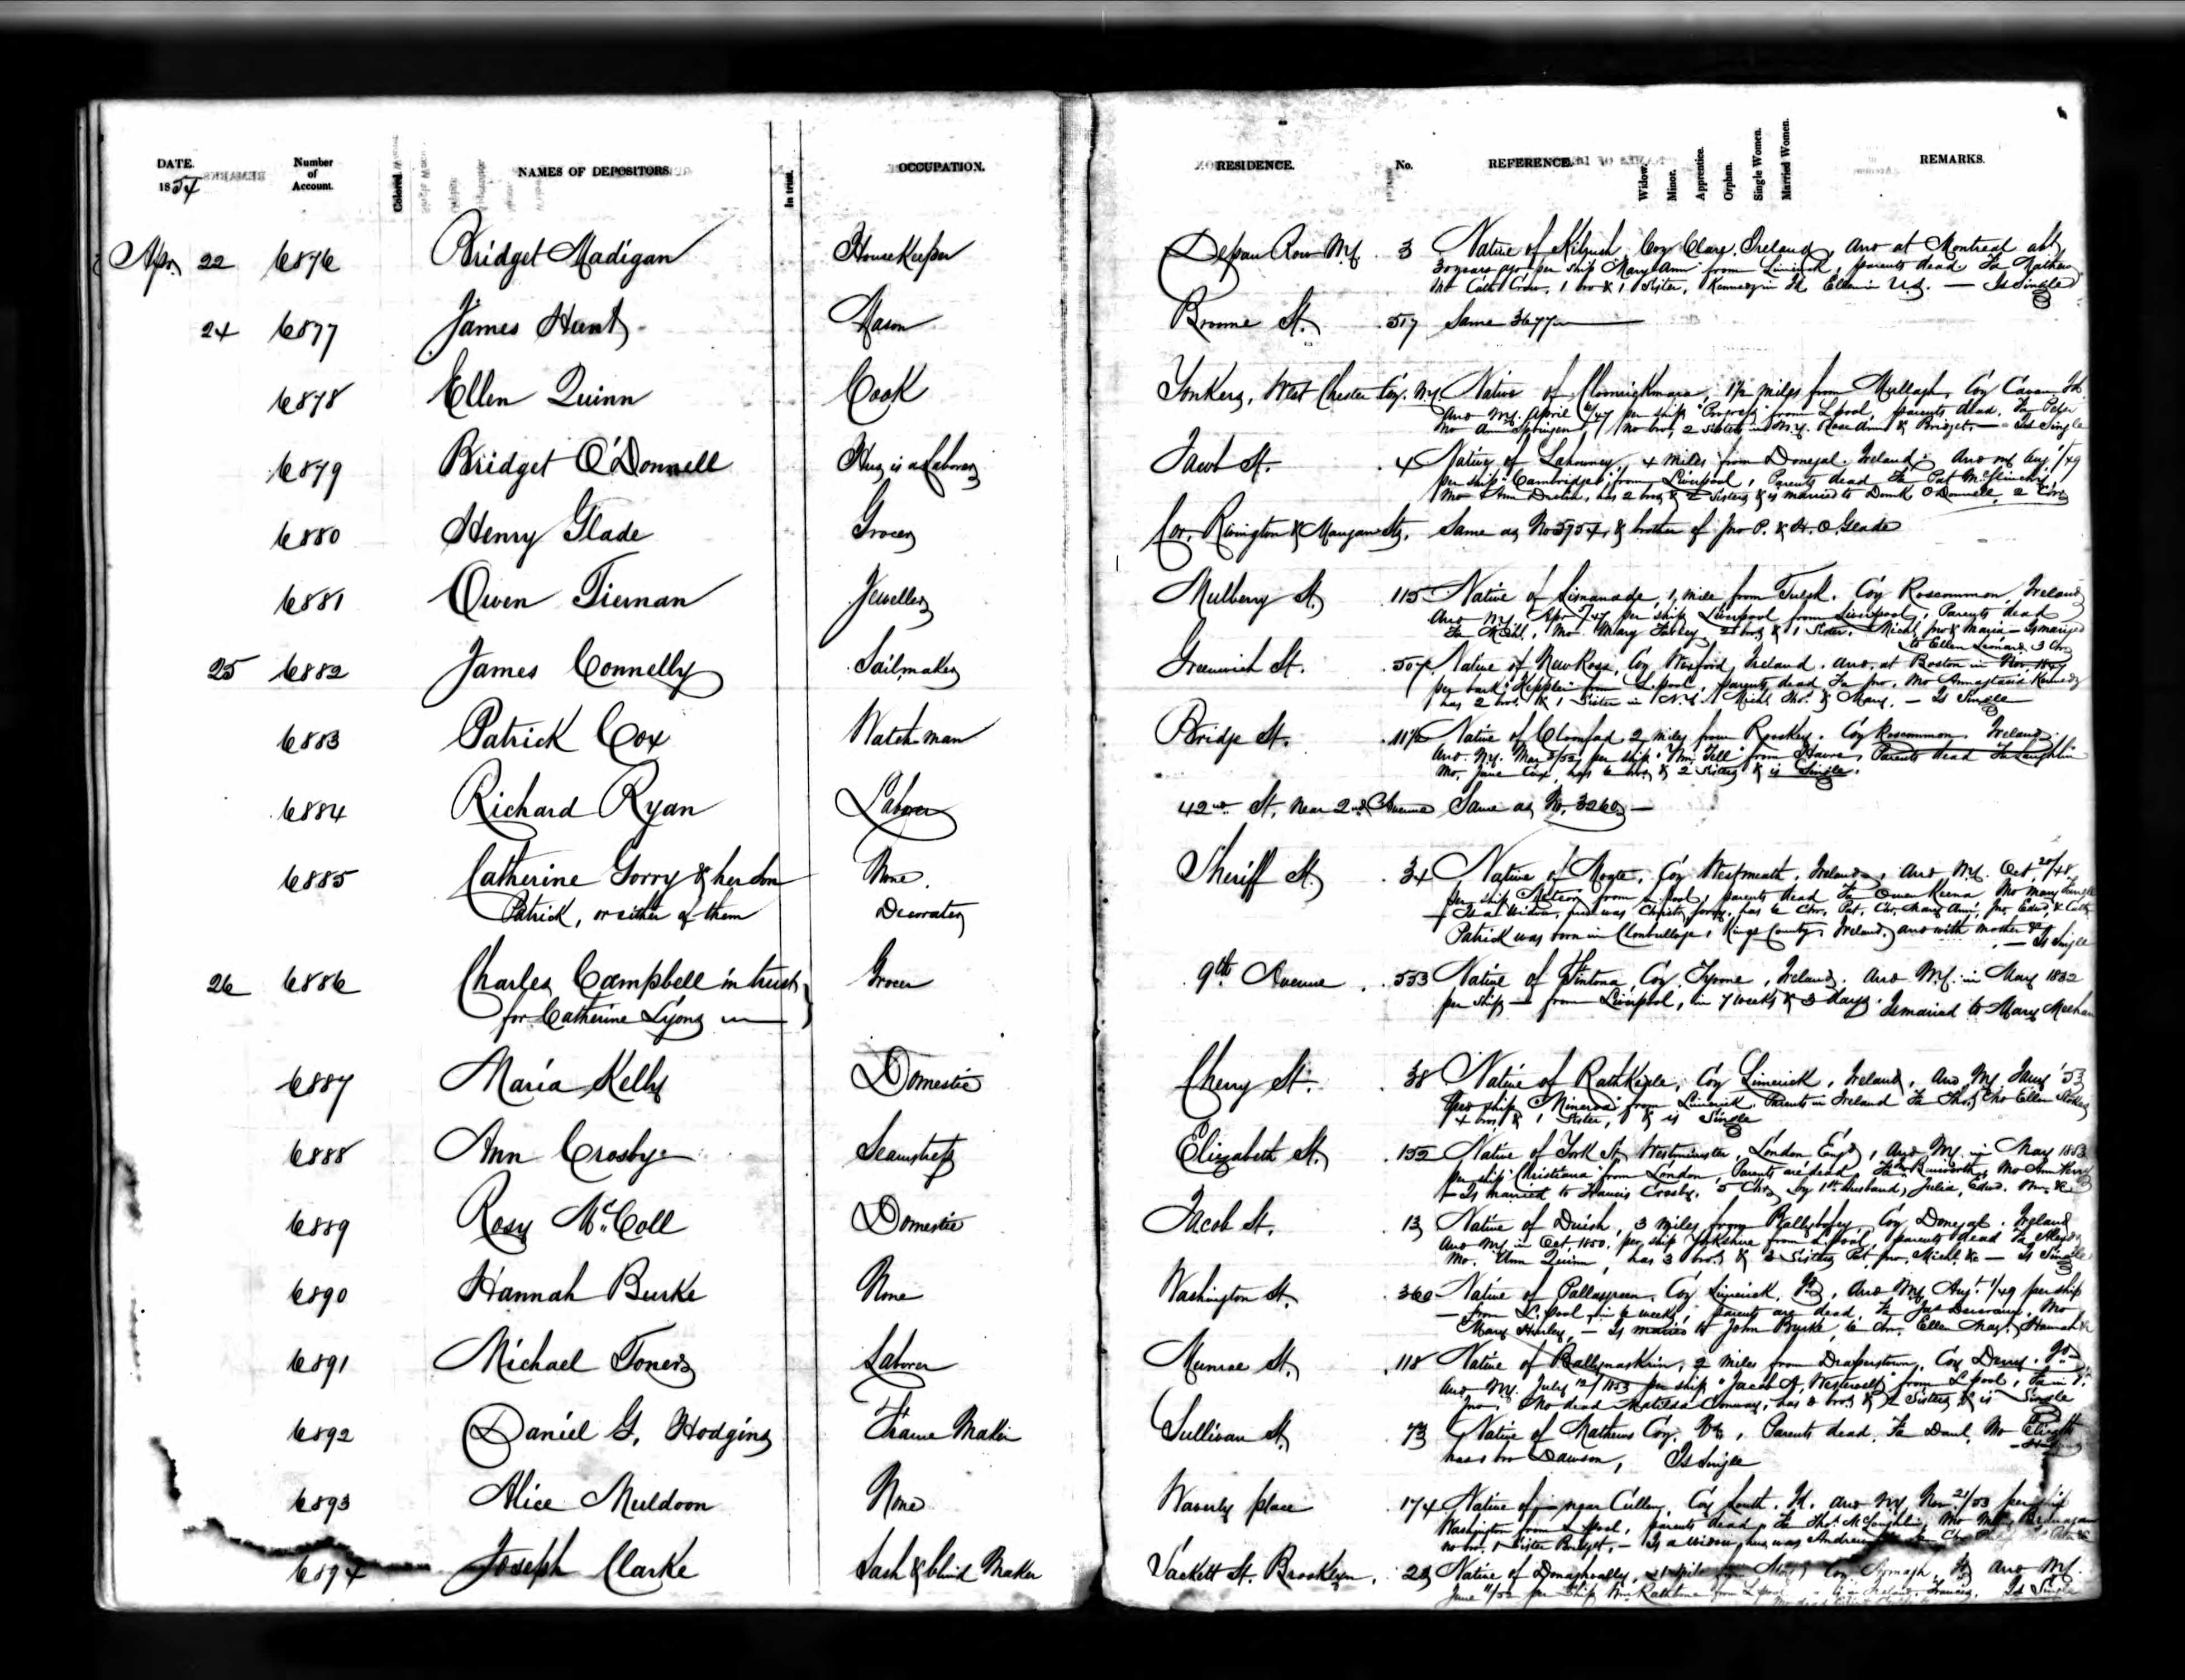 DATE. Number of Account. Colored. NAMES OF DEPOSITORS. In trust. OCCUPATION. RESIDENCE. No. REFERENCE. Widow. Minor. Apprentice. Orphan. Single Women. Married Women. REMARKS.
1854
Apr. 22 6876 Bridget Madigan HouseKeeper Depau Row N.Y. 3 Native of Kilrush Coy Clare, Ireland, arrd at Montreal abt
30 years ago per ship "Mary Ann" from Limerick, parents dead Fa Mathew
Mo Cath Crow, 1 bro & 1 Sister, Kennedy in Id Ellen in U.S. — Is Single
24 6877 James Hunt Mason Broome St. 517 Same 3677
6878 Ellen Quinn Cook Yonkers, West Chester Coy. N.Y. Native of 1½ miles from Mullagh, Coy Cavan Id.
arrd N.Y. April /47 per ship "Congress" from L.pool, parents dead, Fa Peter
Mo Ann no bro, 2 sisters in N.Y. Rose Ann & Bridget. — Is Single
6879 Bridget O'Donnell Hus. is a Laborer Jacob St. 4 Native of 4 miles from Donegal, Ireland, arrd N.Y. Aug /49
per ship "Cambridge" from Liverpool, Parents dead Fa Pat
Mo Ann has 2 bros & 2 Sisters & is married to O'Donnell, 2 Chn
6880 Henry Glade Grocer Cor. Rivington & Mangan Sts. Same as No 5954, & brother of Jno P. & H. O. Glade
6881 Owen Tiernan Jeweller Mulberry St. 115 Native of 1 mile from Tulsk, Coy Roscommon, Ireland
arrd N.Y. Apr 7/47 per ship Liverpool from Liverpool, Parents dead
Fa Michl, Mo. Mary 2 bros & 1 Sister, Michl, Jno & Maria — Is married
to Ellen Leonard 3 Chn
25 6882 James Connelly Sailmaker Greenwich St. 507 Native of New Ross, Coy Wexford, Ireland, arrd. at Boston in Nov. 1849
per bark "Keppler" from L.pool, parents dead Fa Jno, Mo Annastasia Kennedy
has 2 bros & 1 Sister in N.Y. Michl, Thos & Mary. — Is Single
6883 Patrick Cox Watchman Bridge St. 11½ Native of Cloonfad 2 miles from Rooskey, Coy Roscommon, Ireland
arrd. N.Y. May /52 per ship "Wm. Tell" from Havre, Parents dead Fa Laughlin
Mo. Jane Cox, has 6 bros & 2 Sisters & is Single.
6884 Richard Ryan Laborer 42nd St. near 2nd Avenue Same as No. 3260 —
6885 Catherine Gorry & her Son None. Sheriff St. 34 Native of Moate, Coy Westmeath, Ireland, arrd N.Y. Oct 20/48
Patrick, or either of them Decorator per ship Meteor from L.pool, parents dead Fa Owen Keena Mo Mary
— Is a Widow, hus was Christr Gorry, has 6 Chn, Pat, Chr, Mary Ann, Jno, Edwd, & Cath
Patrick was born in Clonbullogue, Kings County, Ireland, arrd with mother & — Is Single
26 6886 Charles Campbell in trust Grocer 9th Avenue 553 Native of Fintona, Coy Tyrone, Ireland, arrd N.Y. in May 1832
for Catherine Lyons per ship — from Liverpool, in 7 weeks & 3 days. Is married to Mary Meehan
6887 Maria Kelly Domestic Cherry St. 38 Native of RathKeale, Coy Limerick, Ireland, arrd N.Y. '53
per ship "Minerva" from Limerick, Parents in Ireland Fa Thos, Mo Ellen Stokes
4 bros & 1 Sister, & is Single
6888 Ann Crosby Seamstress Elizabeth St. 152 Native of York St. Westminster, London Engd, arrd N.Y. in May 1853
per ship "Christiana" from London, Parents are dead, Fa Mo Ann
— Is married to Francis Crosby, 5 Chn by 1st Husband, Julia, Edwd. Wm. &c
6889 Rosy McColl Domestic Jacob St. 13 Native of 3 miles from Ballybofey, Coy Donegal, Ireland
arrd N.Y. in Oct 1850, per ship Yorkshire from L.pool, parents dead Fa
Mo. Ann Quinn, has 3 bros & 2 Sisters Pat, Jno, Michl &c — Is Single
6890 Hannah Burke None Washington St. 360 Native of Pallasgreen, Coy Limerick, Id, arrd N.Y. Augt 1/49 per ship
— from L.pool in 6 weeks, parents are dead, Fa Jas Devereaux, Mo
Mary Hurley, — Is married to John Burke, 6 Chn, Ellen Mary, Hannah &c
6891 Michael Toner Laborer Munroe St. 118 Native of Ballynaskrin, 2 miles from Draperstown, Coy Derry, Id
arrd N.Y. July 12/1853 per ship "Jacob A. Westervelt" from L.pool, Fa in
Jno, Mo dead Matilda Conway, has 2 bros & 2 Sisters & is Single
6892 Daniel G. Hodgins Frame Maker Sullivan St. 73 Native of Mathews Coy. Va, Parents dead, Fa Danl, Mo Elizath
has 1 bro Dawson, Is Single
6893 Alice Muldoon None Waverly place 174 Native of — near Cullen, Coy Louth, Id. arrd N.Y. Nov 21/53 per ship
Washington from L.pool, parents dead, Fa Thos McLaughlin, Mo
no bro, 1 sister Bridget, — Is a Widow, hus was Andrew
6894 Joseph Clarke Sash & blind Maker Sackett St. Brooklyn, 23 Native of 1 mile from Coy Armagh, Id arrd N.Y.
June 11/52 per Ship Wm. Rathbone from L.pool Ireland, Francis, Is Single